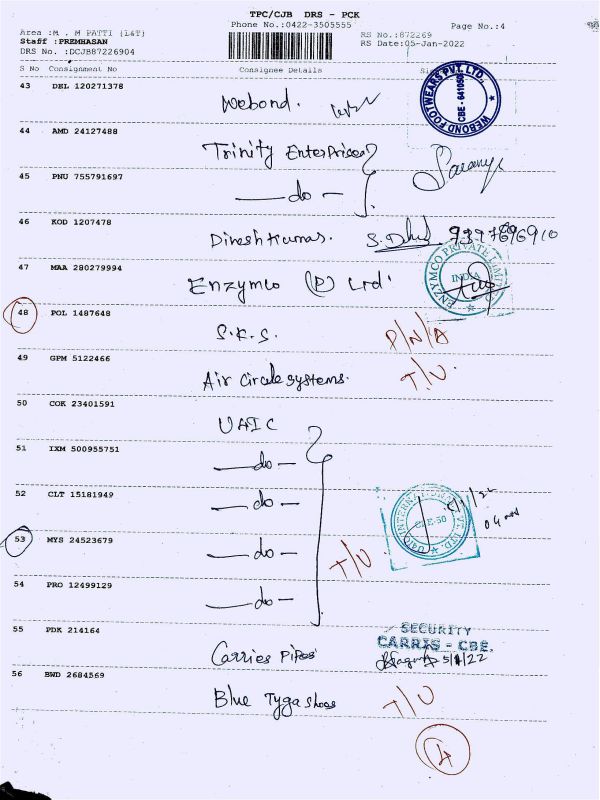 TPC/CJB DRS - PCK
Phone No.:0422-3505555 Page No.:4
Area :M . M PATTI (L&T) RS No.:872269
Staff :PREMHASAN RS Date:05-Jan-2022
DRS No. :DCJB87226904
S No Consignment No Consignee Details
43 DEL 120271378
Webond.
WEBOND FOOTWEARS PVT. LTD.,
44 AMD 24127488
Trinity Enterprises
45 PNU 755791697
—do—
46 KOD 1207478
Dineshkumar.
47 MAA 280279994
Enzymco (P) Ltd.
ENZYMCO PRIVATE LIMITED
INDIA
48 POL 1487648
S.K.S. P/N/A
49 GPM 5122466
Air Circle systems. T/U
50 COK 23401591
UAIC
51 IXM 500955751
—do—
52 CLT 15181949
—do—
CBE-50
53 MYS 24523679
—do— T/U
54 PRO 12499129
—do—
55 PDK 214164
SECURITY
CARRIS - CBE.
Carries Pipes 5/1/22
56 BWD 2684569
Blue Tyga shoes T/U
4